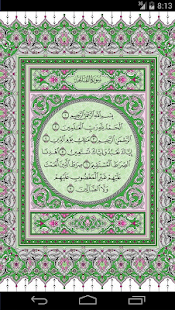 8:13
سورة الفاتحة
بِسْمِ اللَّهِ الرَّحْمَٰنِ الرَّحِيمِ ١
الْحَمْدُ لِلَّهِ رَبِّ الْعَالَمِينَ ٢
الرَّحْمَٰنِ الرَّحِيمِ ٣ مَالِكِ يَوْمِ الدِّينِ ٤
إِيَّاكَ نَعْبُدُ وَإِيَّاكَ نَسْتَعِينُ ٥ اهْدِنَا
الصِّرَاطَ الْمُسْتَقِيمَ ٦ صِرَاطَ الَّذِينَ أَنْعَمْتَ
عَلَيْهِمْ غَيْرِ الْمَغْضُوبِ عَلَيْهِمْ
وَلَا الضَّالِّينَ ٧